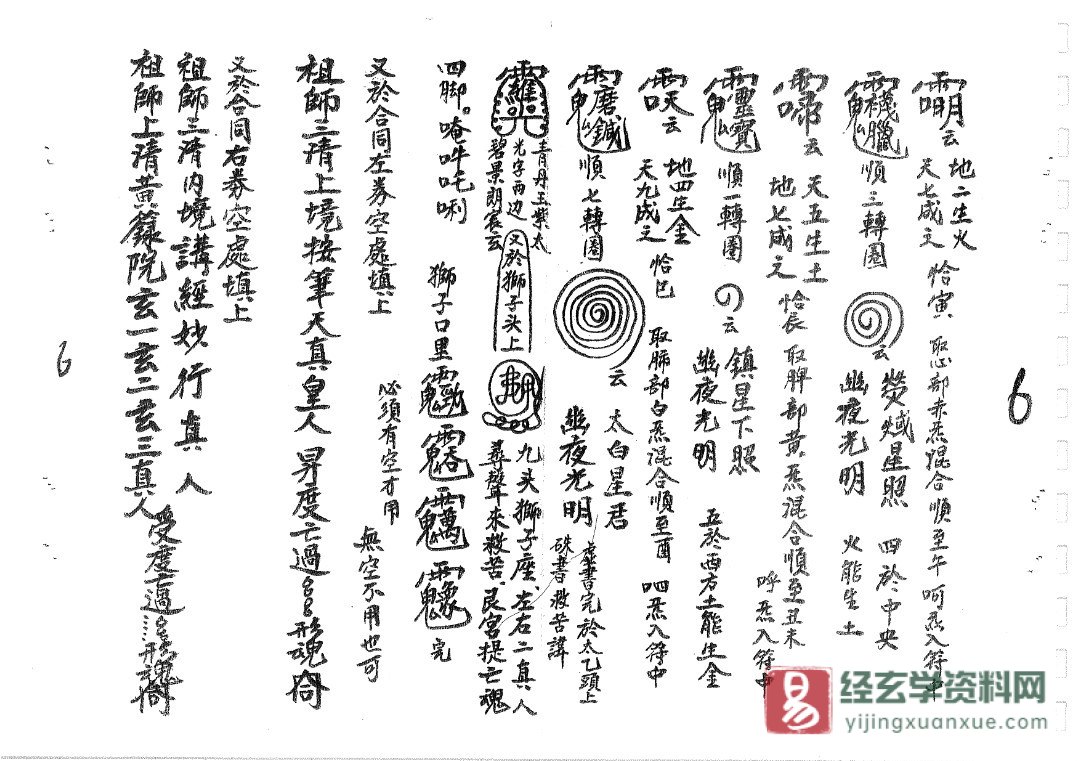 6
云 地二生火 天七成之 恰寅 取心部赤炁混合順至午 呵炁入符中
順三轉圈 云 熒惑星照 幽夜光明 四於中央 火能生土
云 天五生土 地七成之 恰辰 取脾部黃炁混合順至丑未 呼炁入符中
順一轉圈 云 鎮星下照 幽夜光明 五於西方土能生金
云 地四生金 天九成之 恰巳 取肺部白炁混合順至酉 呬炁入符中
順七轉圈 云 太白星君 幽夜光明 書完於太乙頭上 硃書救苦諱
青丹玉紫太 光字两边 碧果朗寥玄 又於獅子头上 九头獅子座、左右二真人 尋聲來救苦、艮宮提亡魂
四脚。唵吽吒唎 獅子口里 完
又於合同左券空處填上 必須有空才用 無空不用也可
祖師三清上境按筆天真皇人 昇度亡過 形魂合同
又於合同右券空處填上
祖師三清內境講經妙行真人
祖師上清黃籙院玄一玄二玄三真人 受度亡過 形魂合同
6
易 经玄学资料网
yijingxuanxue.com